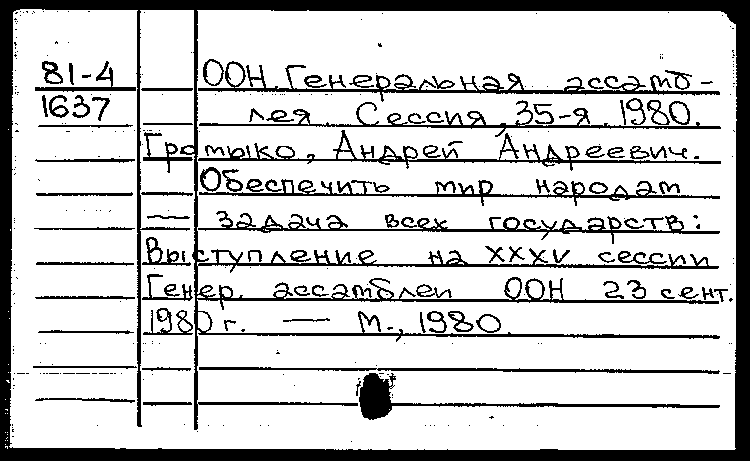 81-4 ООН. Генеральная ассамб-
1637 лея. Сессия, 35-я. 1980.
Громыко, Андрей Андреевич.
Обеспечить мир народам
— задача всех государств:
Выступление на XXXV сессии
Генер. ассамблеи ООН 23 сент.
1980 г. — М., 1980.